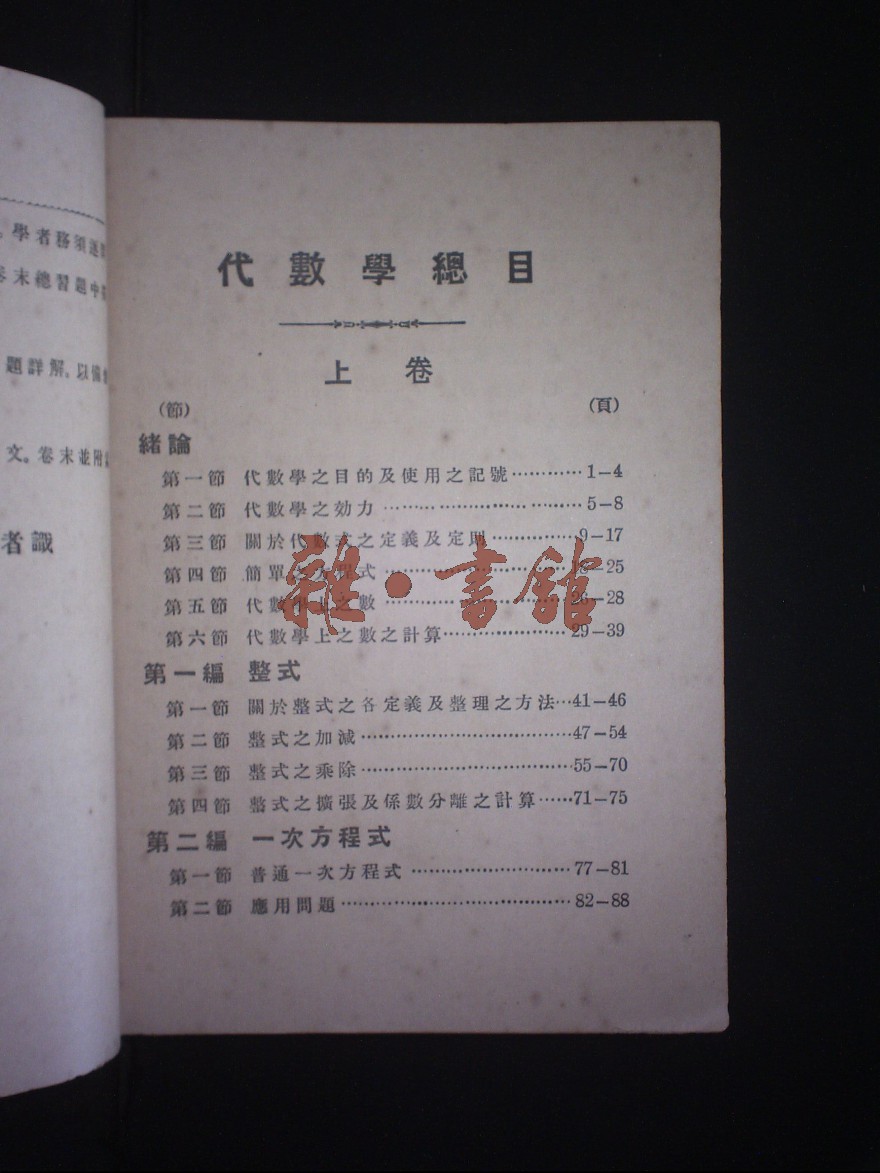 學者務須逐
卷末總習題中
題詳解。以備
文。卷末並附
者識
代數學總目
上卷
(節) (頁)
緒論
第一節 代數學之目的及使用之記號…………1—4
第二節 代數學之効力…………………………5—8
第三節 關於代數式之定義及定則……………9—17
第四節 簡單一次方程式………………………18—25
第五節 代數學上之數…………………………26—28
第六節 代數學上之數之計算…………………29—39
第一編 整式
第一節 關於整式之各定義及整理之方法…41—46
第二節 整式之加減……………………………47—54
第三節 整式之乘除……………………………55—70
第四節 整式之擴張及係數分離之計算……71—75
第二編 一次方程式
第一節 普通一次方程式………………………77—81
第二節 應用問題………………………………82—88
雜·書館